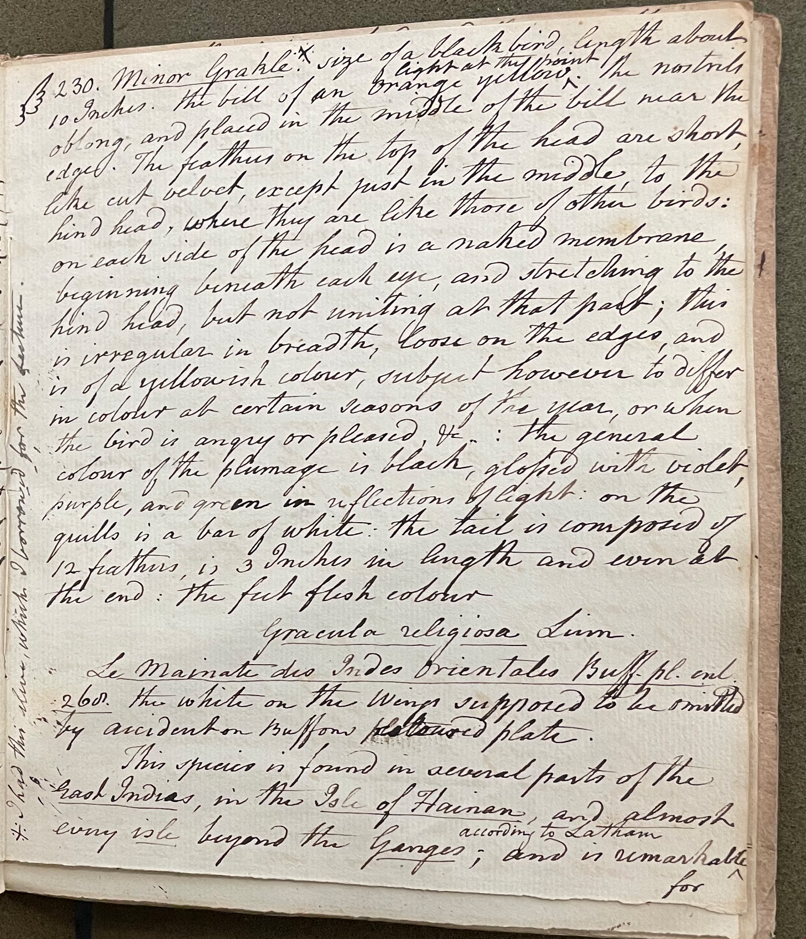 230. Minor Grakle.⁺ size of a blackbird, length about
light at the point
10 Inches. the bill of an orange yellow‸. the nostrils
oblong, and placed in the middle of the bill near the
edge. The feathers on the top of the head are short,
like cut velvet, except just in the middle, to the
hind head, where they are like those of other birds:
on each side of the head is a naked membrane,
beginning beneath each eye, and stretching to the
hind head, but not uniting at that part; this
is irregular in breadth, loose on the edges, and
is of a yellowish colour, subject however to differ
in colour at certain seasons of the year, or when
the bird is angry or pleased, &c.: the general
colour of the plumage is black, glossed with violet,
purple, and green in reflections of light: on the
quills is a bar of white: the tail is composed of
12 feathers, is 3 Inches in length and even at
the end: the feet flesh colour
Gracula religiosa Linn.
Le Mainate des Indes Orientales Buff. pl. enl.
268. the white on the Wings supposed to be omitted
by accident on Buffons coloured plate.
This species is found in several parts of the
East Indias, in the Isle of Hainan, and almost
according to Latham
every isle beyond the Ganges; and is remarkable‸
for
⁺. I had this alive, which I borrowed for the lecture.